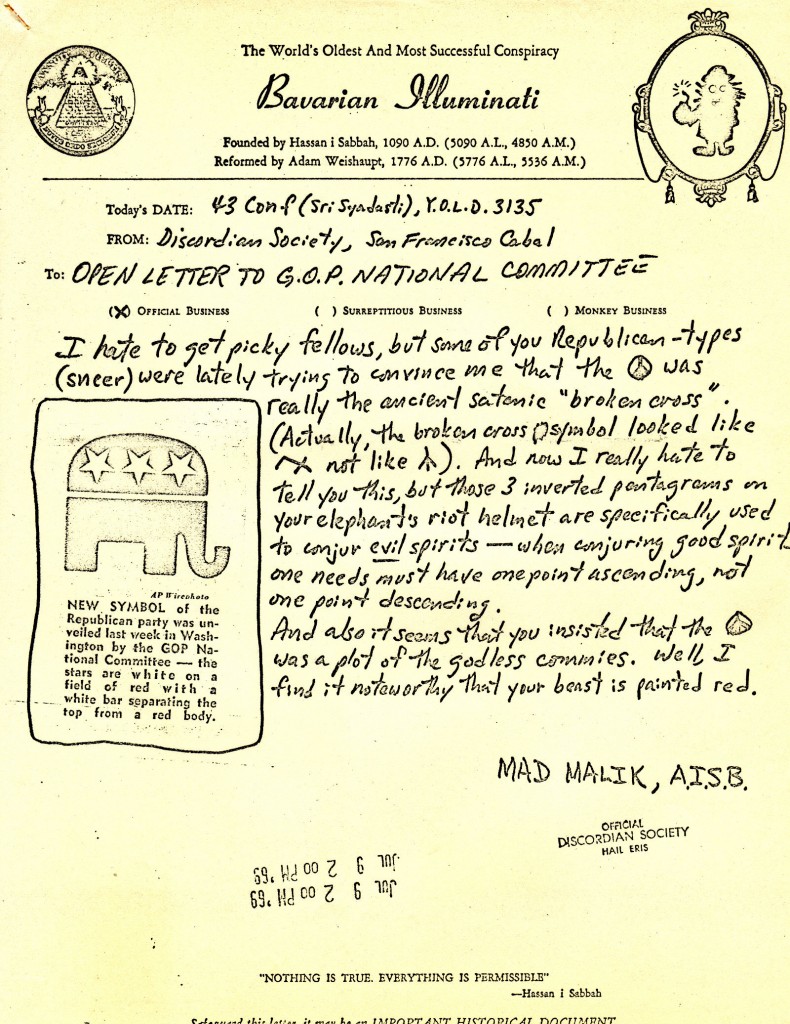 The World's Oldest And Most Successful Conspiracy
Bavarian Illuminati
Founded by Hassan i Sabbah, 1090 A.D. (5090 A.L., 4850 A.M.)
Reformed by Adam Weishaupt, 1776 A.D. (5776 A.L., 5536 A.M.)
Today's DATE: 43 Conf (Sri Syadasti), Y.O.L.D. 3135
FROM: Discordian Society, San Francisco Cabal
To: OPEN LETTER TO G.O.P. NATIONAL COMMITTEE
(X) OFFICIAL BUSINESS ( ) SURREPTITIOUS BUSINESS ( ) MONKEY BUSINESS
I hate to get picky fellows, but some of you Republican-types
(sneer) were lately trying to convince me that the was
really the ancient satanic "broken cross".
(Actually, the broken cross symbol looked like
not like ). And now I really hate to
tell you this, but those 3 inverted pentagrams on
your elephant's riot helmet are specifically used
to conjur evil spirits — when conjuring good spirits
one needs must have one point ascending, not
one point descending.
And also it seems that you insisted that the
was a plot of the godless commies. Well, I
find it noteworthy that your beast is painted red.
AP Wirephoto
NEW SYMBOL of the
Republican party was un-
veiled last week in Wash-
ington by the GOP Na-
tional Committee — the
stars are white on a
field of red with a
white bar separating the
top from a red body.
MAD MALIK, A.I.S.B.
OFFICIAL
DISCORDIAN SOCIETY
HAIL ERIS
JUL 9 2 00 PM '69
JUL 9 2 00 PM '69
"NOTHING IS TRUE. EVERYTHING IS PERMISSIBLE"
—Hassan i Sabbah
Safeguard this letter, it may be an IMPORTANT HISTORICAL DOCUMENT